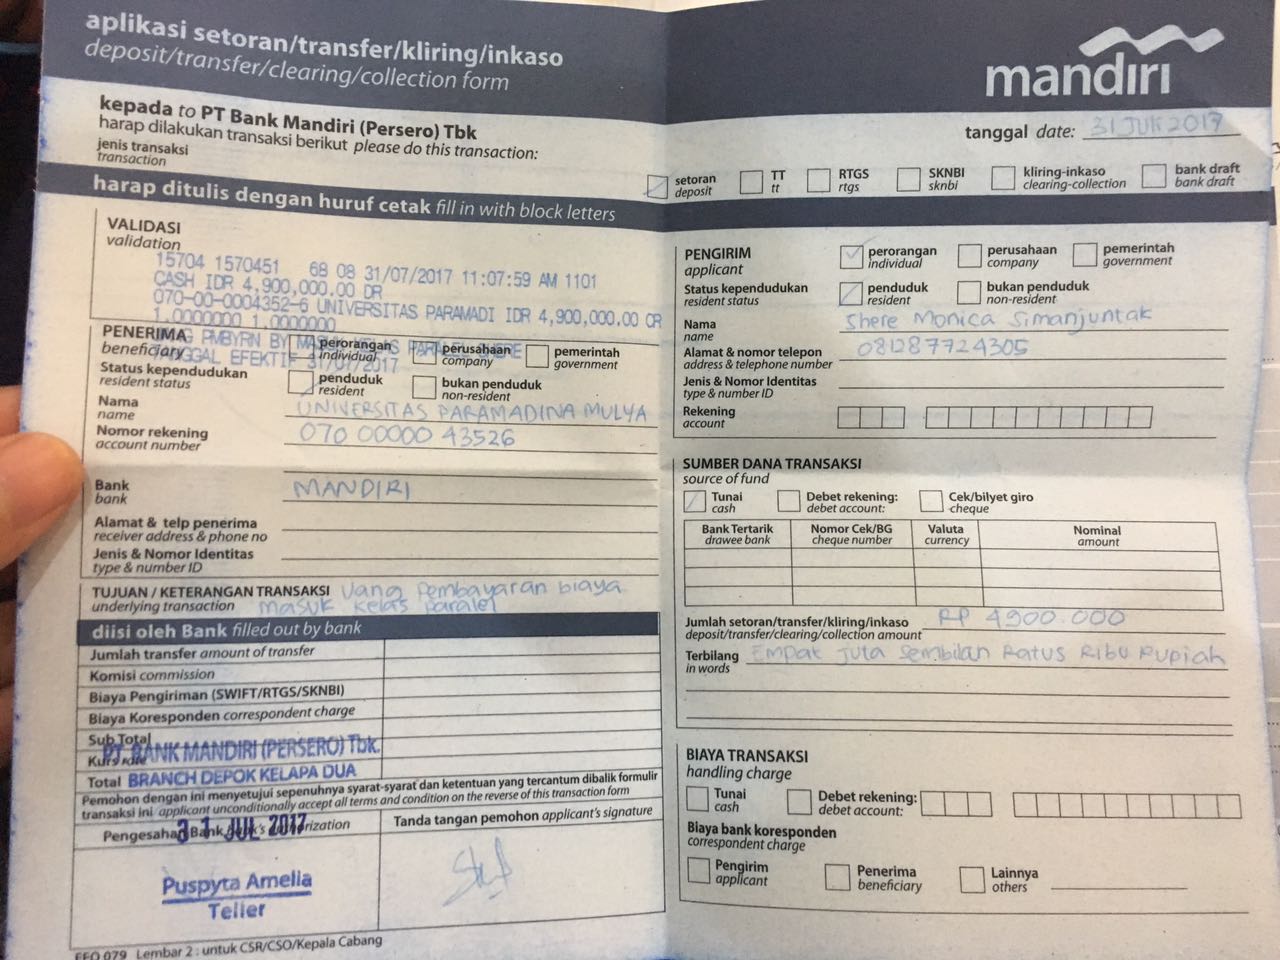 aplikasi setoran/transfer/kliring/inkaso
deposit/transfer/clearing/collection form
mandiri
kepada to PT Bank Mandiri (Persero) Tbk
harap dilakukan transaksi berikut please do this transaction:
tanggal date: 31 JULI 2017
jenis transaksi
transaction
setoran
deposit
TT
tt
RTGS
rtgs
SKNBI
sknbi
kliring-inkaso
clearing-collection
bank draft
bank draft
harap ditulis dengan huruf cetak fill in with block letters
VALIDASI
validation
15704 1570451 68 08 31/07/2017 11:07:59 AM 1101
CASH IDR 4,900,000.00 DR
070-00-0004352-6 UNIVERSITAS PARAMADI IDR 4,900,000.00 CR
1.0000000 1.0000000
PMBYRN BY MASUK KELAS PARALEL SHERE
TANGGAL EFEKTIF 31/07/2017
PENERIMA
beneficiary
perorangan
individual
perusahaan
company
pemerintah
government
Status kependudukan
resident status
penduduk
resident
bukan penduduk
non-resident
Nama
name
UNIVERSITAS PARAMADINA MULYA
Nomor rekening
account number
070 00000 43526
Bank
bank
MANDIRI
Alamat & telp penerima
receiver address & phone no
Jenis & Nomor Identitas
type & number ID
TUJUAN / KETERANGAN TRANSAKSI Uang Pembayaran biaya
underlying transaction masuk kelas paralel
diisi oleh Bank filled out by bank
Jumlah transfer amount of transfer
Komisi commission
Biaya Pengiriman (SWIFT/RTGS/SKNBI)
Biaya Koresponden correspondent charge
Sub Total
PT BANK MANDIRI (PERSERO) Tbk.
Kurs rate
Total BRANCH DEPOK KELAPA DUA
Pemohon dengan ini menyetujui sepenuhnya syarat-syarat dan ketentuan yang tercantum dibalik formulir
transaksi ini applicant unconditionally accept all terms and condition on the reverse of this transaction form
Pengesahan Bank bank's authorization
31 JUL 2017
Tanda tangan pemohon applicant's signature
Puspyta Amelia
Teller
Lembar 2 : untuk CSR/CSO/Kepala Cabang
PENGIRIM
applicant
perorangan
individual
perusahaan
company
pemerintah
government
Status kependudukan
resident status
penduduk
resident
bukan penduduk
non-resident
Nama
name
Shere Monica Simanjuntak
Alamat & nomor telepon
address & telephone number
081287724305
Jenis & Nomor Identitas
type & number ID
Rekening
account
SUMBER DANA TRANSAKSI
source of fund
Tunai
cash
Debet rekening:
debet account:
Cek/bilyet giro
cheque
Bank Tertarik
drawee bank
Nomor Cek/BG
cheque number
Valuta
currency
Nominal
amount
Jumlah setoran/transfer/kliring/inkaso
deposit/transfer/clearing/collection amount
RP 4900.000
Terbilang
in words
Empat Juta Sembilan Ratus Ribu Rupiah
BIAYA TRANSAKSI
handling charge
Tunai
cash
Debet rekening:
debet account:
Biaya bank koresponden
correspondent charge
Pengirim
applicant
Penerima
beneficiary
Lainnya
others